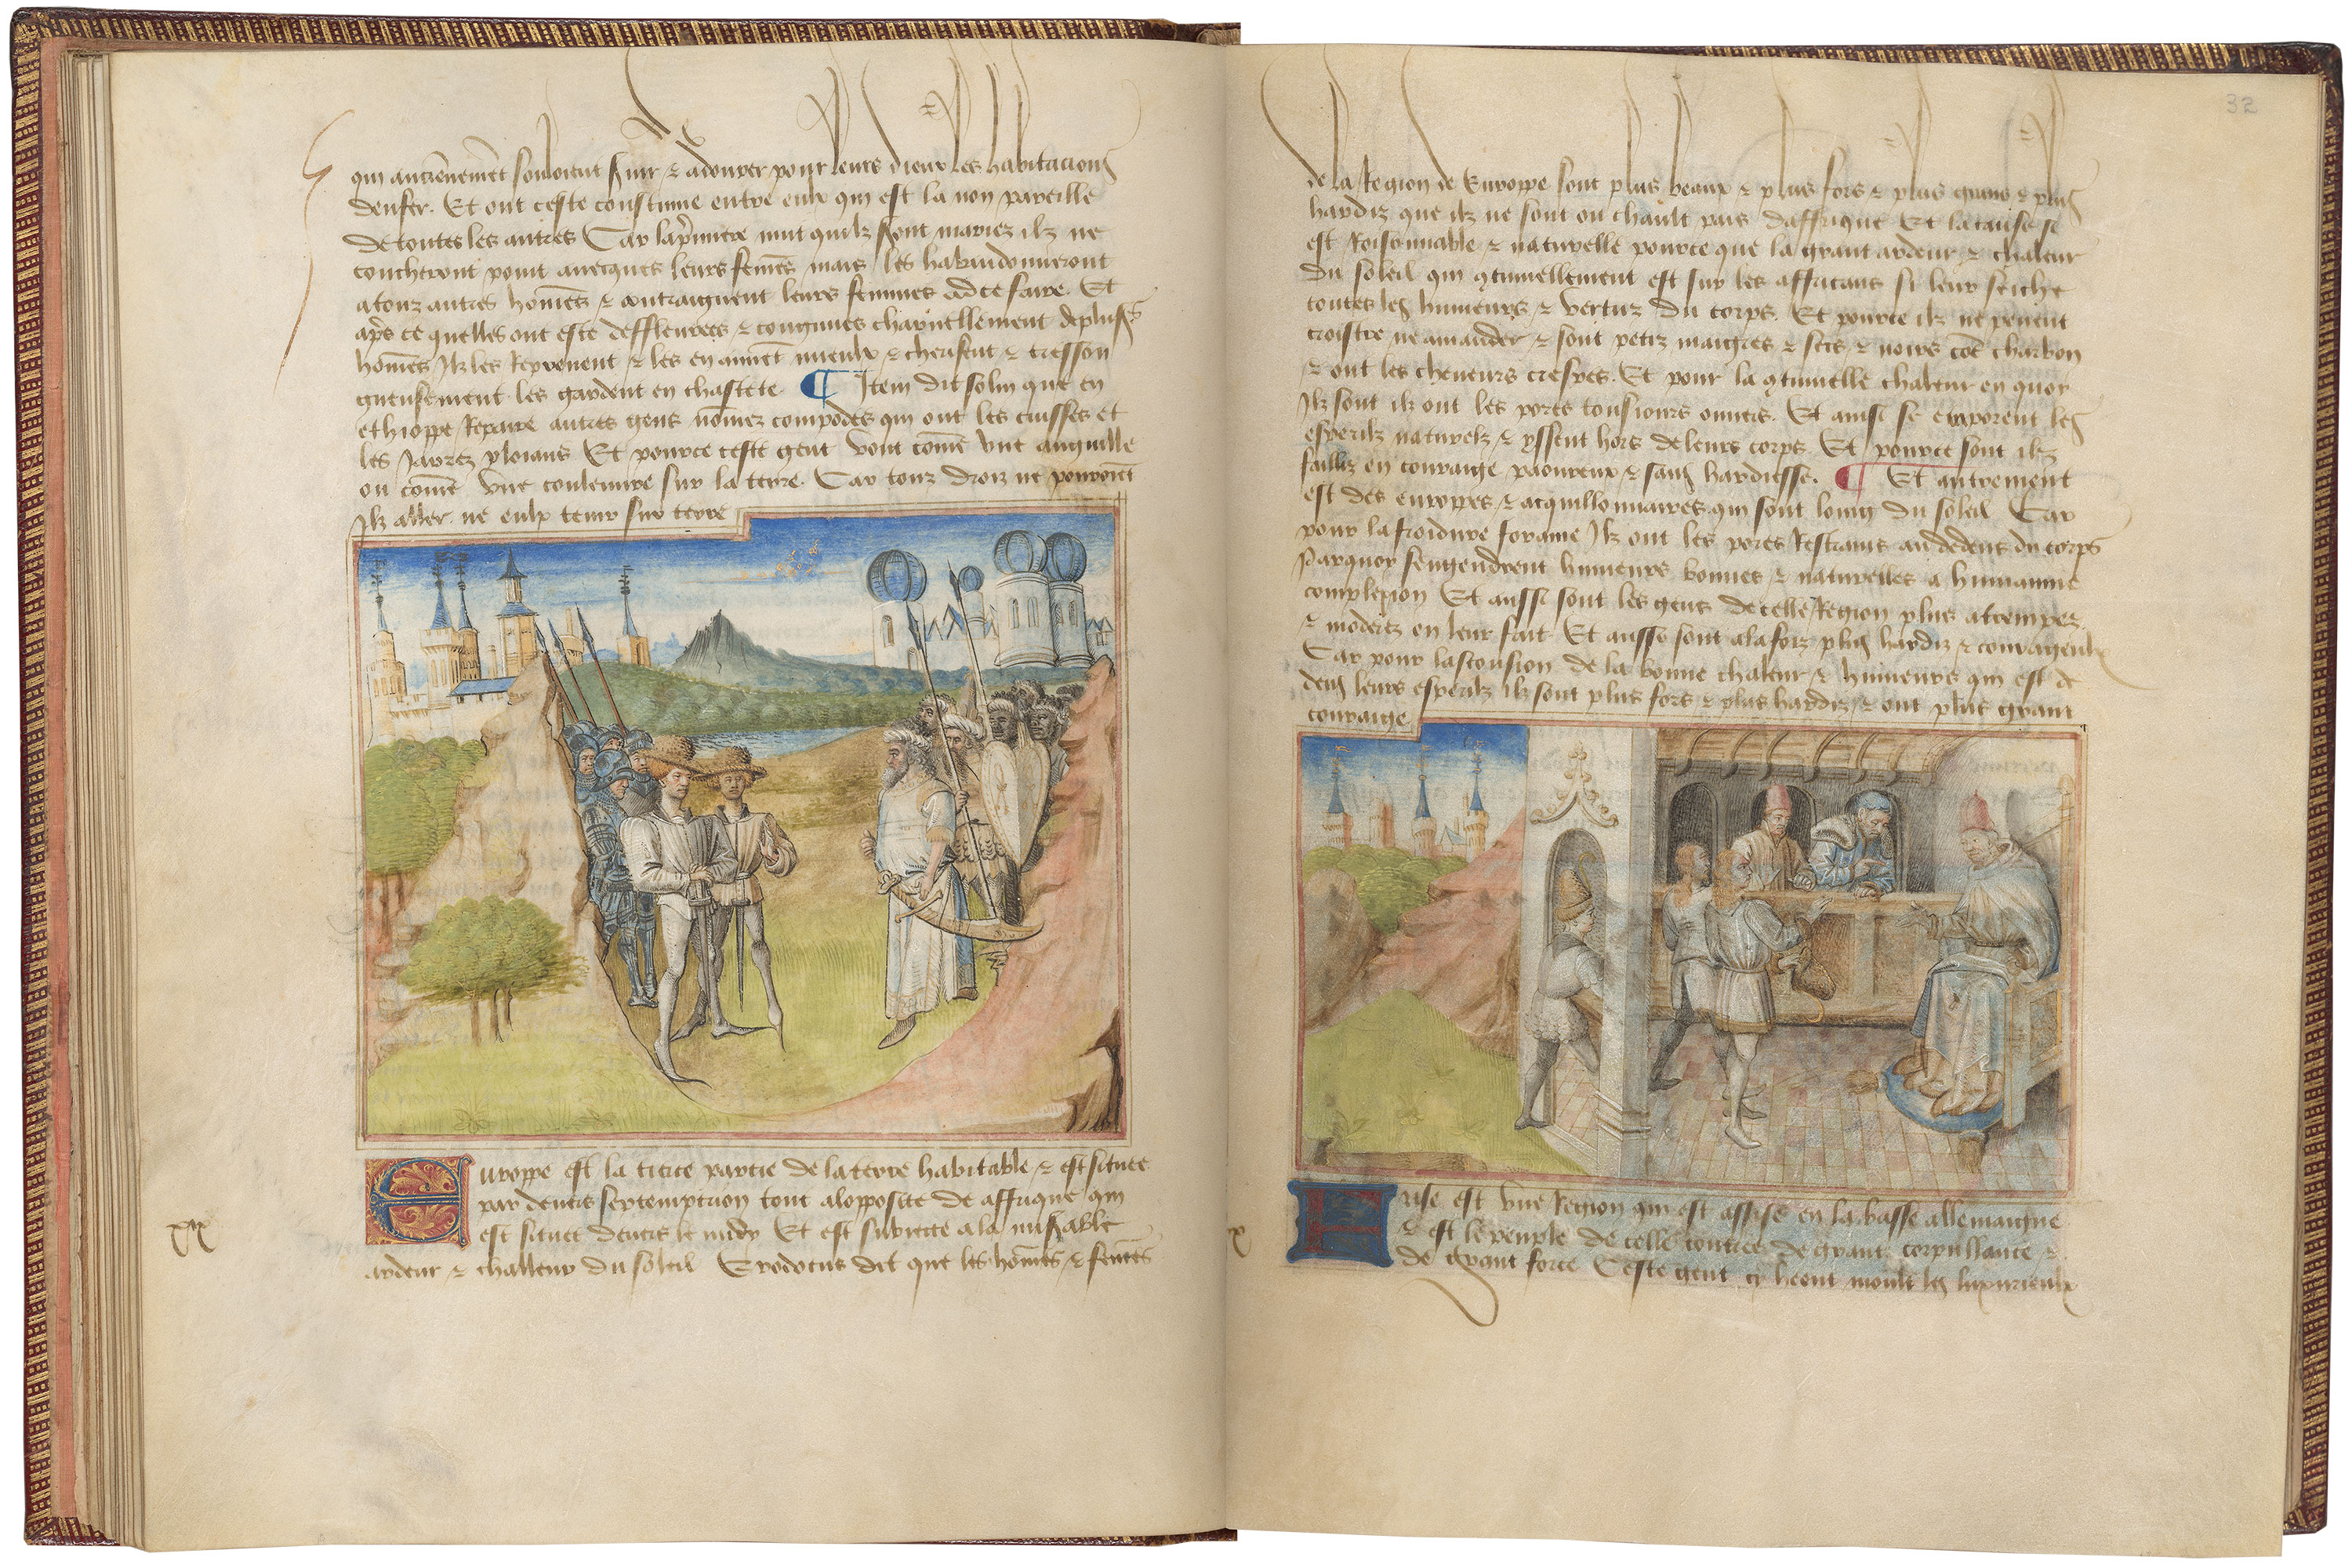 qui anciēnemēt souloient s̄uir ⁊ adourer pour leurs dieux les habitacions
denfer. Et ont ceste coustume entre eulx qui est la non pareille
de toutes les autres Car la p̄miere nuit quilz sont mariez ilz ne
coucheront point avecques leurs femēs mais les habandonneront
a touz autres homēs ⁊ contraignent leurs femmes ad ce faire. Et
ap̄s ce quelles ont este deffleurees ⁊ congnues charnellement de plus̄rs
homēs Ilz les Reprenent ⁊ les en aimēt mieulx ⁊ cherisent ⁊ tresson
gneusement les gardent en chastete ¶ Item dit solin que en
ethioppe Repaire autres gens nōmez compodes qui ont les cuisses et
les Jarrez ploians Et pource ceste gent vont cōme vne anguille
ou cōme vne couleuvre sur la terre. Car touz droiz ne pouroiēt
Ilz aller ne eulx tenir sur terre
Europpe est la tierce partie de la terre habitable ⁊ est situee
par devers septemptrion tout alopposite de affrique qui
est situee devers le midy Et est subiecte a la mis̄able
ardeur ⁊ challeur du soleil Erodotus dit que les homēs ⁊ femēs
xix
32
de la Region de Europpe sont plus beaux ⁊ plus fors ⁊ plus grans ⁊ plus
hardiz que ilz ne sont ou chault pais daffrique Et la cause se
est Roisonnable ⁊ naturelle pource que la grant ardeur ⁊ chaleur
du soleil qui ꝯtinuellement est sur les affricans si leur seiche
toutes les humeurs ⁊ vertuz du corps. Et pource ilz ne peuent
croistre ne amander ⁊ sont petiz maigres ⁊ secs ⁊ noirs cōe charbon
⁊ ont les cheveurs crespes. Et pour la ꝯtinuelle chaleur en quoy
Ilz sont ilz ont les pores tousiours ouvers. Et ainsi se evaporent les
esperilz naturelz ⁊ yssent hors de leurs corps Et pource sont ilz
failliz en couraige paoureux ⁊ sans hardiesse. ¶ Et autrement
est des europpes ⁊ acquillonnaires qui sont loing du soleil Car
pour la froidure foraine Ilz ont les pores Restrains au dedens du corps
Parquoy sengendrent humeurs bonnes ⁊ naturelles a humainne
complexion Et aussi sont les gens de celle Region plus attempez
⁊ moderez en leur fait Et ausse sont a la foiz plus hardiz ⁊ couraigeulx
Car pour lasconsion de la bonne chaleur ⁊ humeurs qui est de
dens leurs esperilz ilz sont plus fors ⁊ plus hardiz ⁊ ont plus grant
couraige
Frise est vne Region qui est assise en la basse allemaigne
⁊ est le peuple de celle contree de grant corpullance ⁊
de grant force Ceste gent cy heent moult les luxurieulx
x